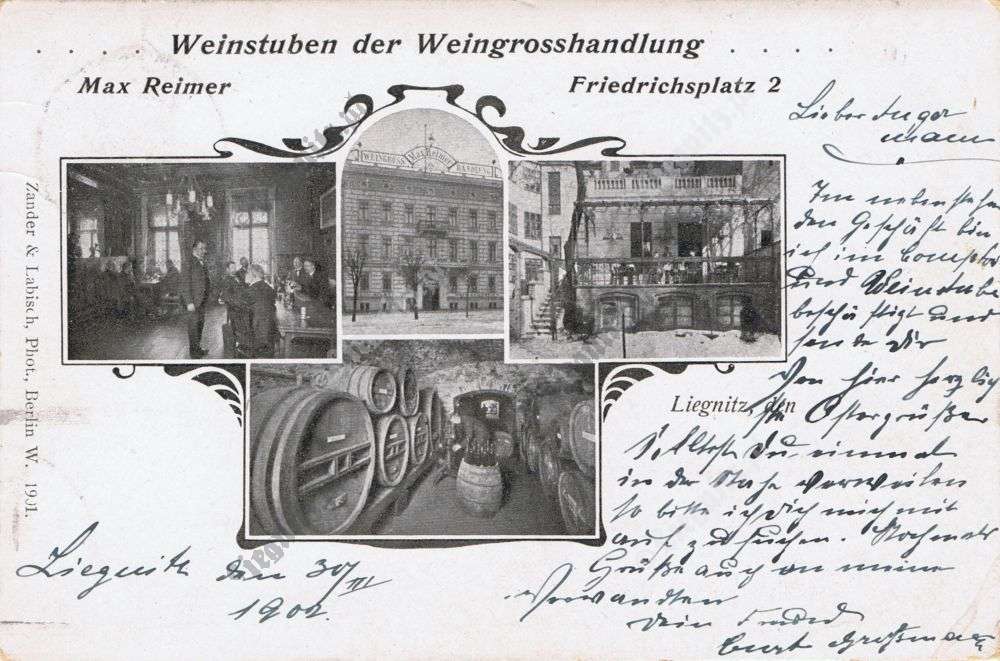 . . . . Weinstuben der Weingrosshandlung . . . .
Max Reimer
Friedrichsplatz 2
WEINGROSS Max Reimer HANDLUNG
Zander & Labisch, Phot., Berlin W. 1901.
Liegnitz, den
Lieber
mann
Im nebenstehen
den Geschäft bin
ich im
und Weinstube
beschäftigt und
sende Dir
von hier herzlich
ste Ostergrüße
Solltest Du einmal
in der Nähe verweilen
so bitte ich Dich mich mit
auf zu suchen. Nochmals
Grüße auch an meine
Verwandten
Dein Freund
Curt
Liegnitz den 30/III
1902.